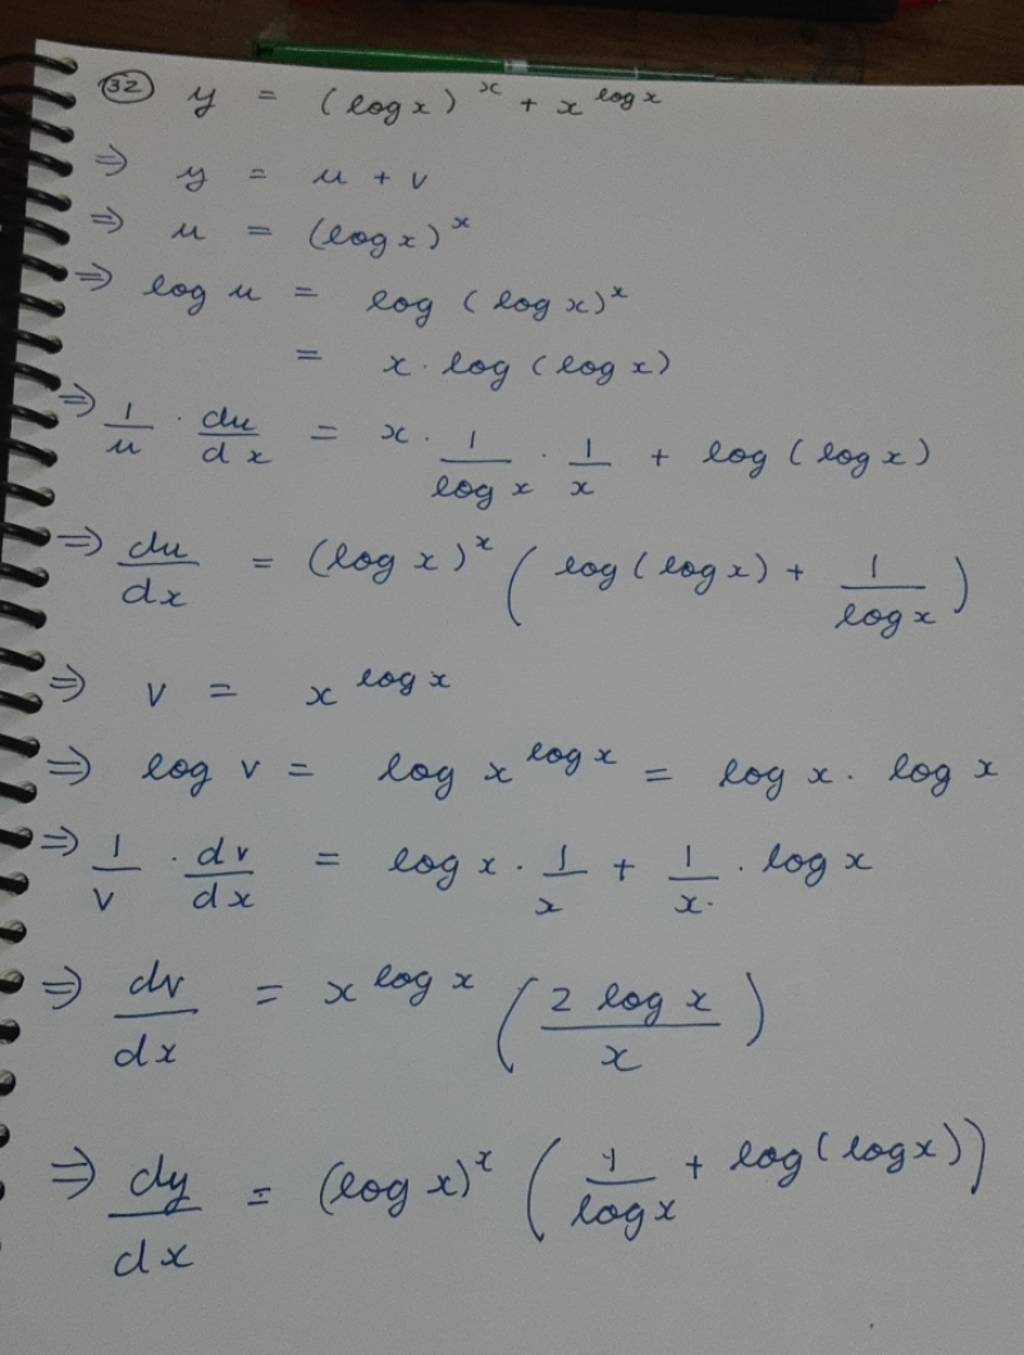 32 y = (log x)^x + x^log x
⇒ y = u + v
⇒ u = (log x)^x
⇒ log u = log (log x)^x
= x · log (log x)
⇒ 1/u · du/dx = x · 1/log x · 1/x + log (log x)
⇒ du/dx = (log x)^x ( log (log x) + 1/log x )
⇒ v = x^log x
⇒ log v = log x^log x = log x · log x
⇒ 1/v · dv/dx = log x · 1/x + 1/x · log x
⇒ dv/dx = x^log x ( 2 log x / x )
⇒ dy/dx = (log x)^x ( 1/log x + log (log x) )